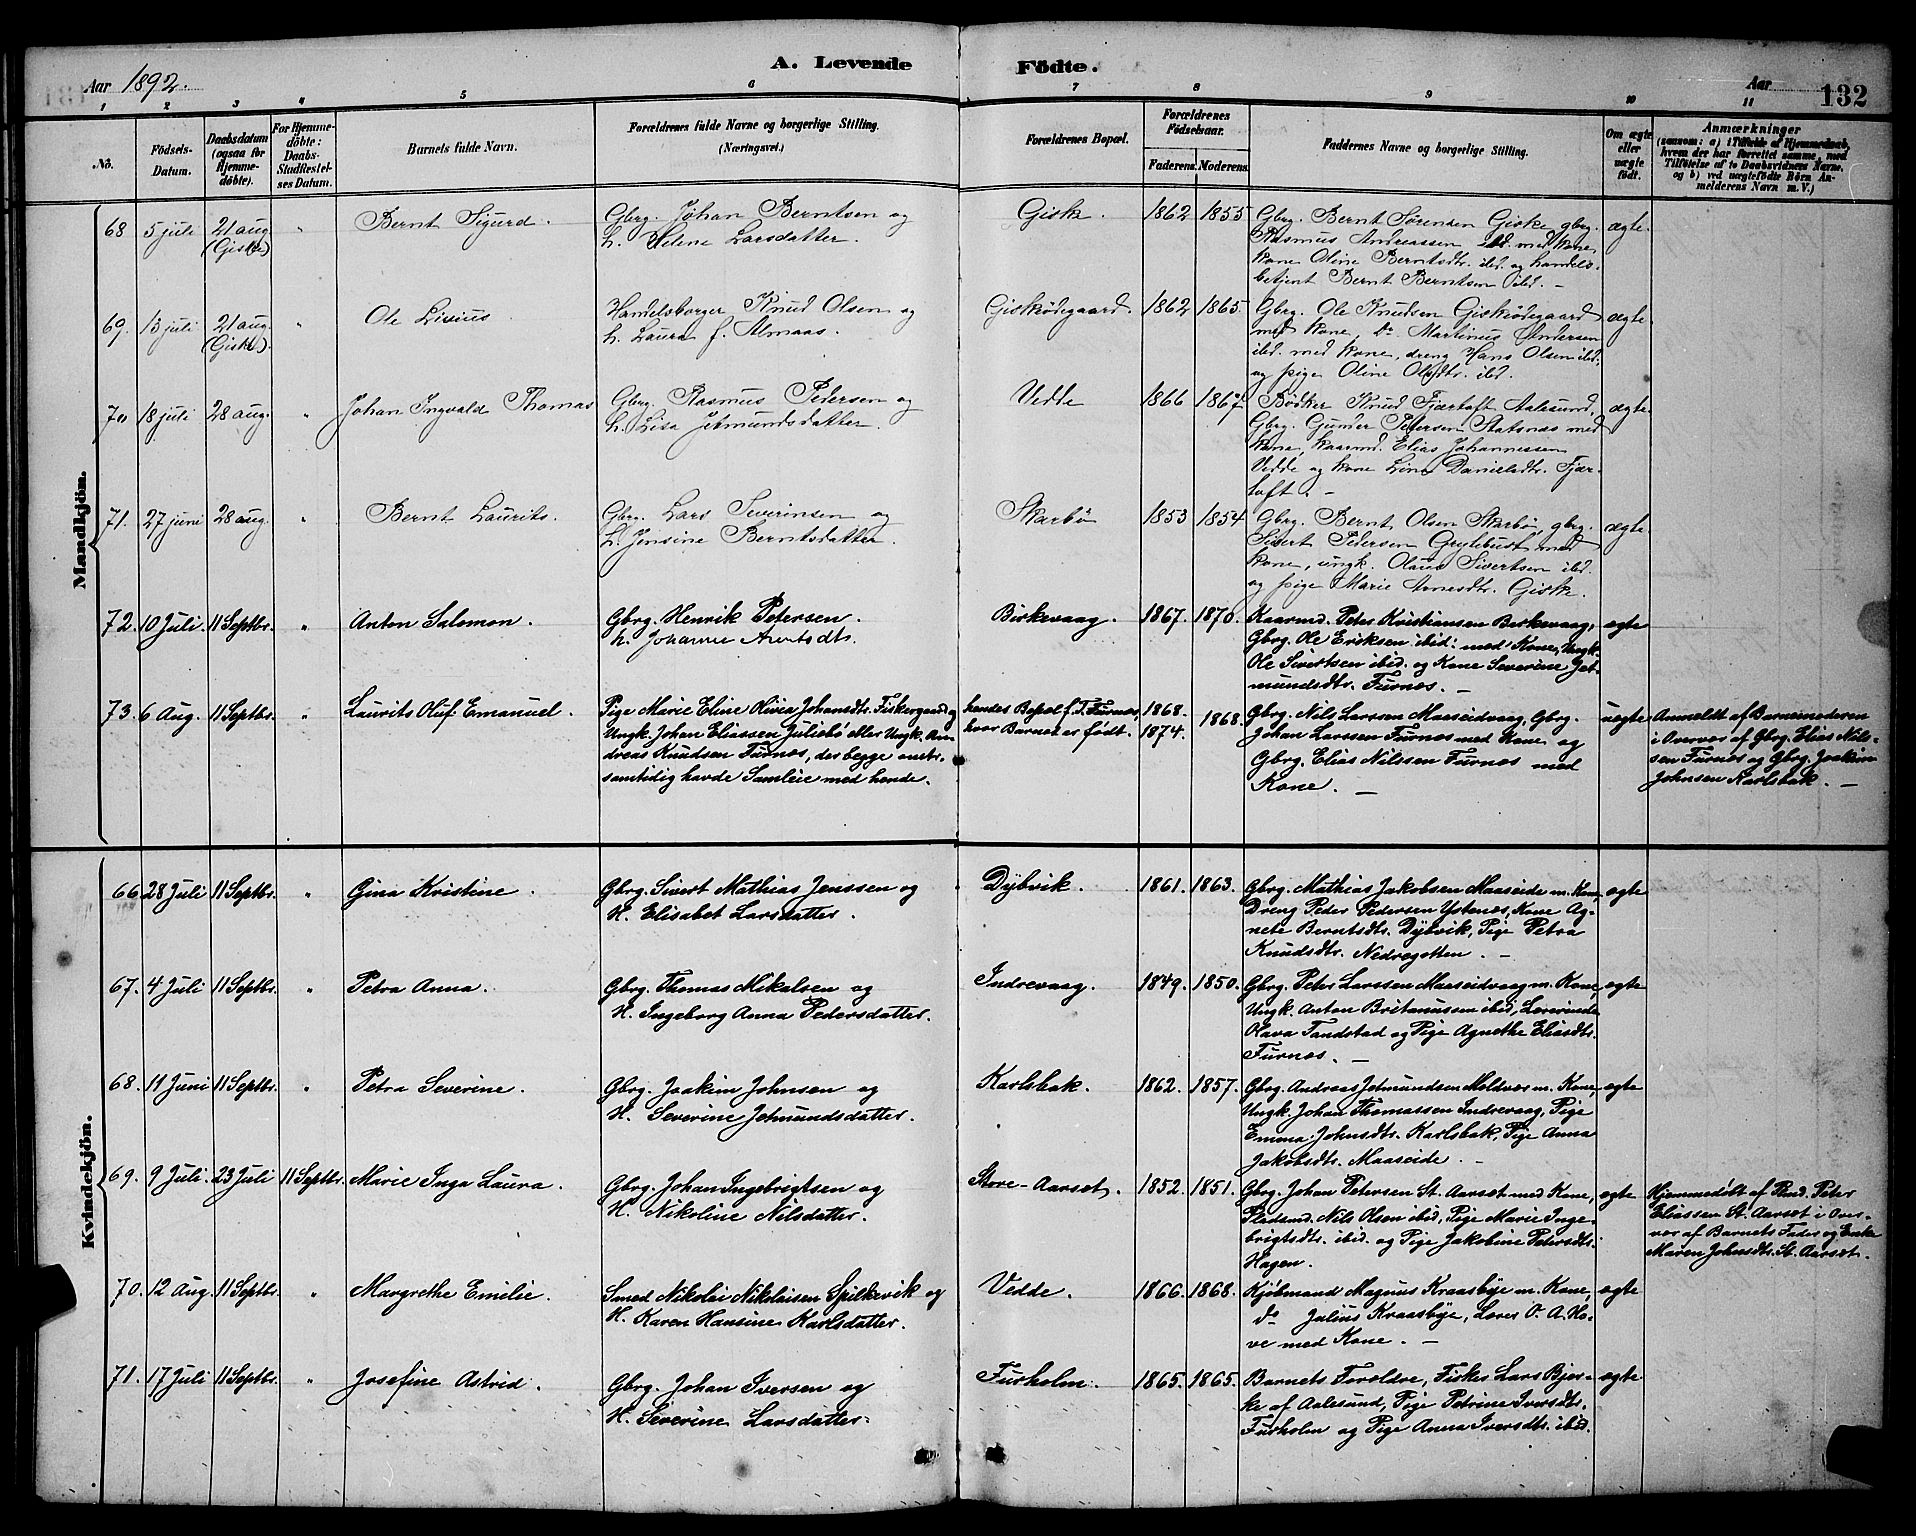 A. Levende Födte.
Aar 1892.
Aar
132
1 2 3 4 5 6 7 8 9 10 11
No.
Födsels-
Datum.
Daabsdatum
(ogsaa for
Hjemme-
döbte).
For Hjemme-
döbte:
Daabs-
Stadfæstel-
ses Datum.
Barnets fulde Navn.
Forældrenes fulde Navne og borgerlige Stilling.
(Næringsvei.)
Forældrenes Bopæl.
Forældrenes
Födselsaar.
Faderens. Moderens.
Faddernes Navne og borgerlige Stilling.
Om ægte
eller
uægte
födt.
Anmærkninger
(saasom: a) i Tilfælde af Hjemmedaab,
hvem der har forrettet samme, med
Tilföielse af to Daabsvidners Navne,
og b) ved uægtefödte Börn An-
melderens Navn m. V.)
Mandkjön.
68 5 juli 21 aug (Giske) " Bernt Sigurd.
Gbrg. Johan Berntsen og
h. Selene Larsdatter.
Giske. 1862 1855
Gbrg. Bernt Sørensen Giske, gbrg.
Rasmus Andreassen ibd. med kone,
kone Oline Berntsdtr. ibd. og handels-
betjent Bernt Berntsen ibd. —
ægte.
69. 13 juli 21 aug. (Giske). " Ole Livius.
Handelsborger Knud Olsen og
h. Laura f. Almaas.
Giskødegaard. 1862 1865.
Gbrg. Ole Knudsen Giskødegaard
med kone, do Martinus Andersen
ibd. med kone, dreng Hans Olsen ibd.
og pige Oline Olsdtr. ibd.
ægte.
70 18 juli 28 aug. " Johan Ingvald Thomas
Gbrg. Rasmus Pedersen og
h. Lisa Jetmundsdatter.
Vedde 1866 1867
Bødker Knud Fjærtoft Aalesund,
Gbrg. Gunder Petersen Statsnæs med
kone, kaarmd. Elias Johannessen
Vedde og kone Line Danielsdtr. Fjær-
toft. —
ægte.
71. 27 juni 28 aug. " Bernt Laurits.
Gbrg. Lars Severinsen og
h. Jensine Berntsdatter.
Skarbø 1853 1854
Gbrg. Bernt Olsen Skarbø, gbrg.
Sivert Pedersen Grytebust med
kone, ungk. Olaus Sivertsen ibd.
og pige Marie Arnesdtr. Giske.
ægte
72. 10 Juli. 11 Septbr. " Anton Salomon.
Gbrg. Henrik Petersen.
h. Johanne Arntsdtr.
Birkevaag. 1867. 1870.
Kaarmd. Peter Kristiansen Birkevaag,
Gbrg. Ole Eriksen ibid. med Kone, Ungk.
Ole Sivertsen ibid. og Kone Severine Jet-
mundsdtr. Furnes. —
ægte
73. 6 Aug. 11 Septbr. " Laurits Oluf Emanuel.
Pige Marie Eline Olivia Johansdtr. Fiskergaard og
Ungk. Johan Eliassen Juliebø eller Ungk. An-
dreas Knudsen Furnes, der begge omtr.
samtidig havde Samleie med hende.
hendes Bopæl f. T. Furnes,
hvor Barnet er født.
1868.
1874. 1868.
Gbrg. Nils Larssen Maaseidvaag, Gbrg.
Johan Larssen Furnes med Kone og
Gbrg. Elias Nilssen Furnes med
Kone. —
uægte
Anmeldt af Barnemoderen
i Overvær af Gbrg. Elias Nils-
sen Furnes og Gbrg. Joakim
Johnsen Karlsbak. —
Kvindekjön.
66 28 Juli 11 Septbr. " Gina Kristine.
Gbrg. Sivert Mathias Jenssen og
H. Elisabet Larsdatter.
Dybvik. 1861. 1863.
Gbrg. Mathias Jakobsen Maaseide m. Kone,
Dreng Peder Pedersen Ystenes, Kone Ag-
nete Berntsdtr. Dybvik, Pige Petra
Knudsdtr. Nedregotten. —
ægte
67. 4 Juli 11 Septbr. " Petra Anna.
Gbrg. Thomas Mikalsen og
H. Ingeborg Anna Pedersdatter.
Indrevaag. 1849. 1850.
Gbrg. Peter Larssen Maaseidvaag m. Kone,
Ungk. Anton Britanussen ibid, Lærerinde
Olava Tandstad og Pige Agnethe Eliasdtr.
Furnes. —
ægte
68. 11 Juni 11 Septbr. " Petra Severine.
Gbrg. Joakim Johnsen og
H. Severine Jetmundsdatter.
Karlsbak. 1862. 1857.
Gbrg. Andreas Jetmundsen Moldvær m. Kone,
Ungk. Johan Thomassen Indrevaag, Pige
Emma Johnsdtr. Karlsbak, Pige Anna
Jakobsdtr. Maaseide. —
ægte
69. 9 Juli. 23 Juli 11 Septbr. Marie Inga Laura.
Gbrg. Johan Ingebrigtsen og
H. Nikoline Nilsdatter.
Store-Aarset. 1852. 1851.
Gbrg. Johan Petersen St. Aarset med Kone,
Pladsmd. Nils Olsen ibid, Pige Marie Inge-
brigtsdtr. ibid. og Pige Jakobine Petersdtr.
Hagen.
ægte
Hjemmedøbt af Peter
Eliassen St. Aarset i Over-
vær af Barnets Fader og Enke
Maren Johnsdtr. St. Aarset.
70. 12 Aug. 11 Septbr. " Margrethe Emilie.
Smed Nikolai Nikolaisen Spilkevik og
H. Karen Hansine Karlsdatter.
Vedde. 1866. 1868.
Kjøbmand Magnus Kraasbye m. Kone,
do Julius Kraasbye, Lærer O. A. Ho-
ve med Kone. —
ægte
71. 17 Juli 11 Septbr. " Josefine Astrid.
Gbrg. Johan Iversen og
H. Severine Larsdatter.
Furholm. 1865. 1865.
Barnets Foreldre, Fisker Lars Bjer-
ke af Aalesund, Pige Petrine Iversdtr.
Furholm og Pige Anna Iversdtr. ibid.
ægte